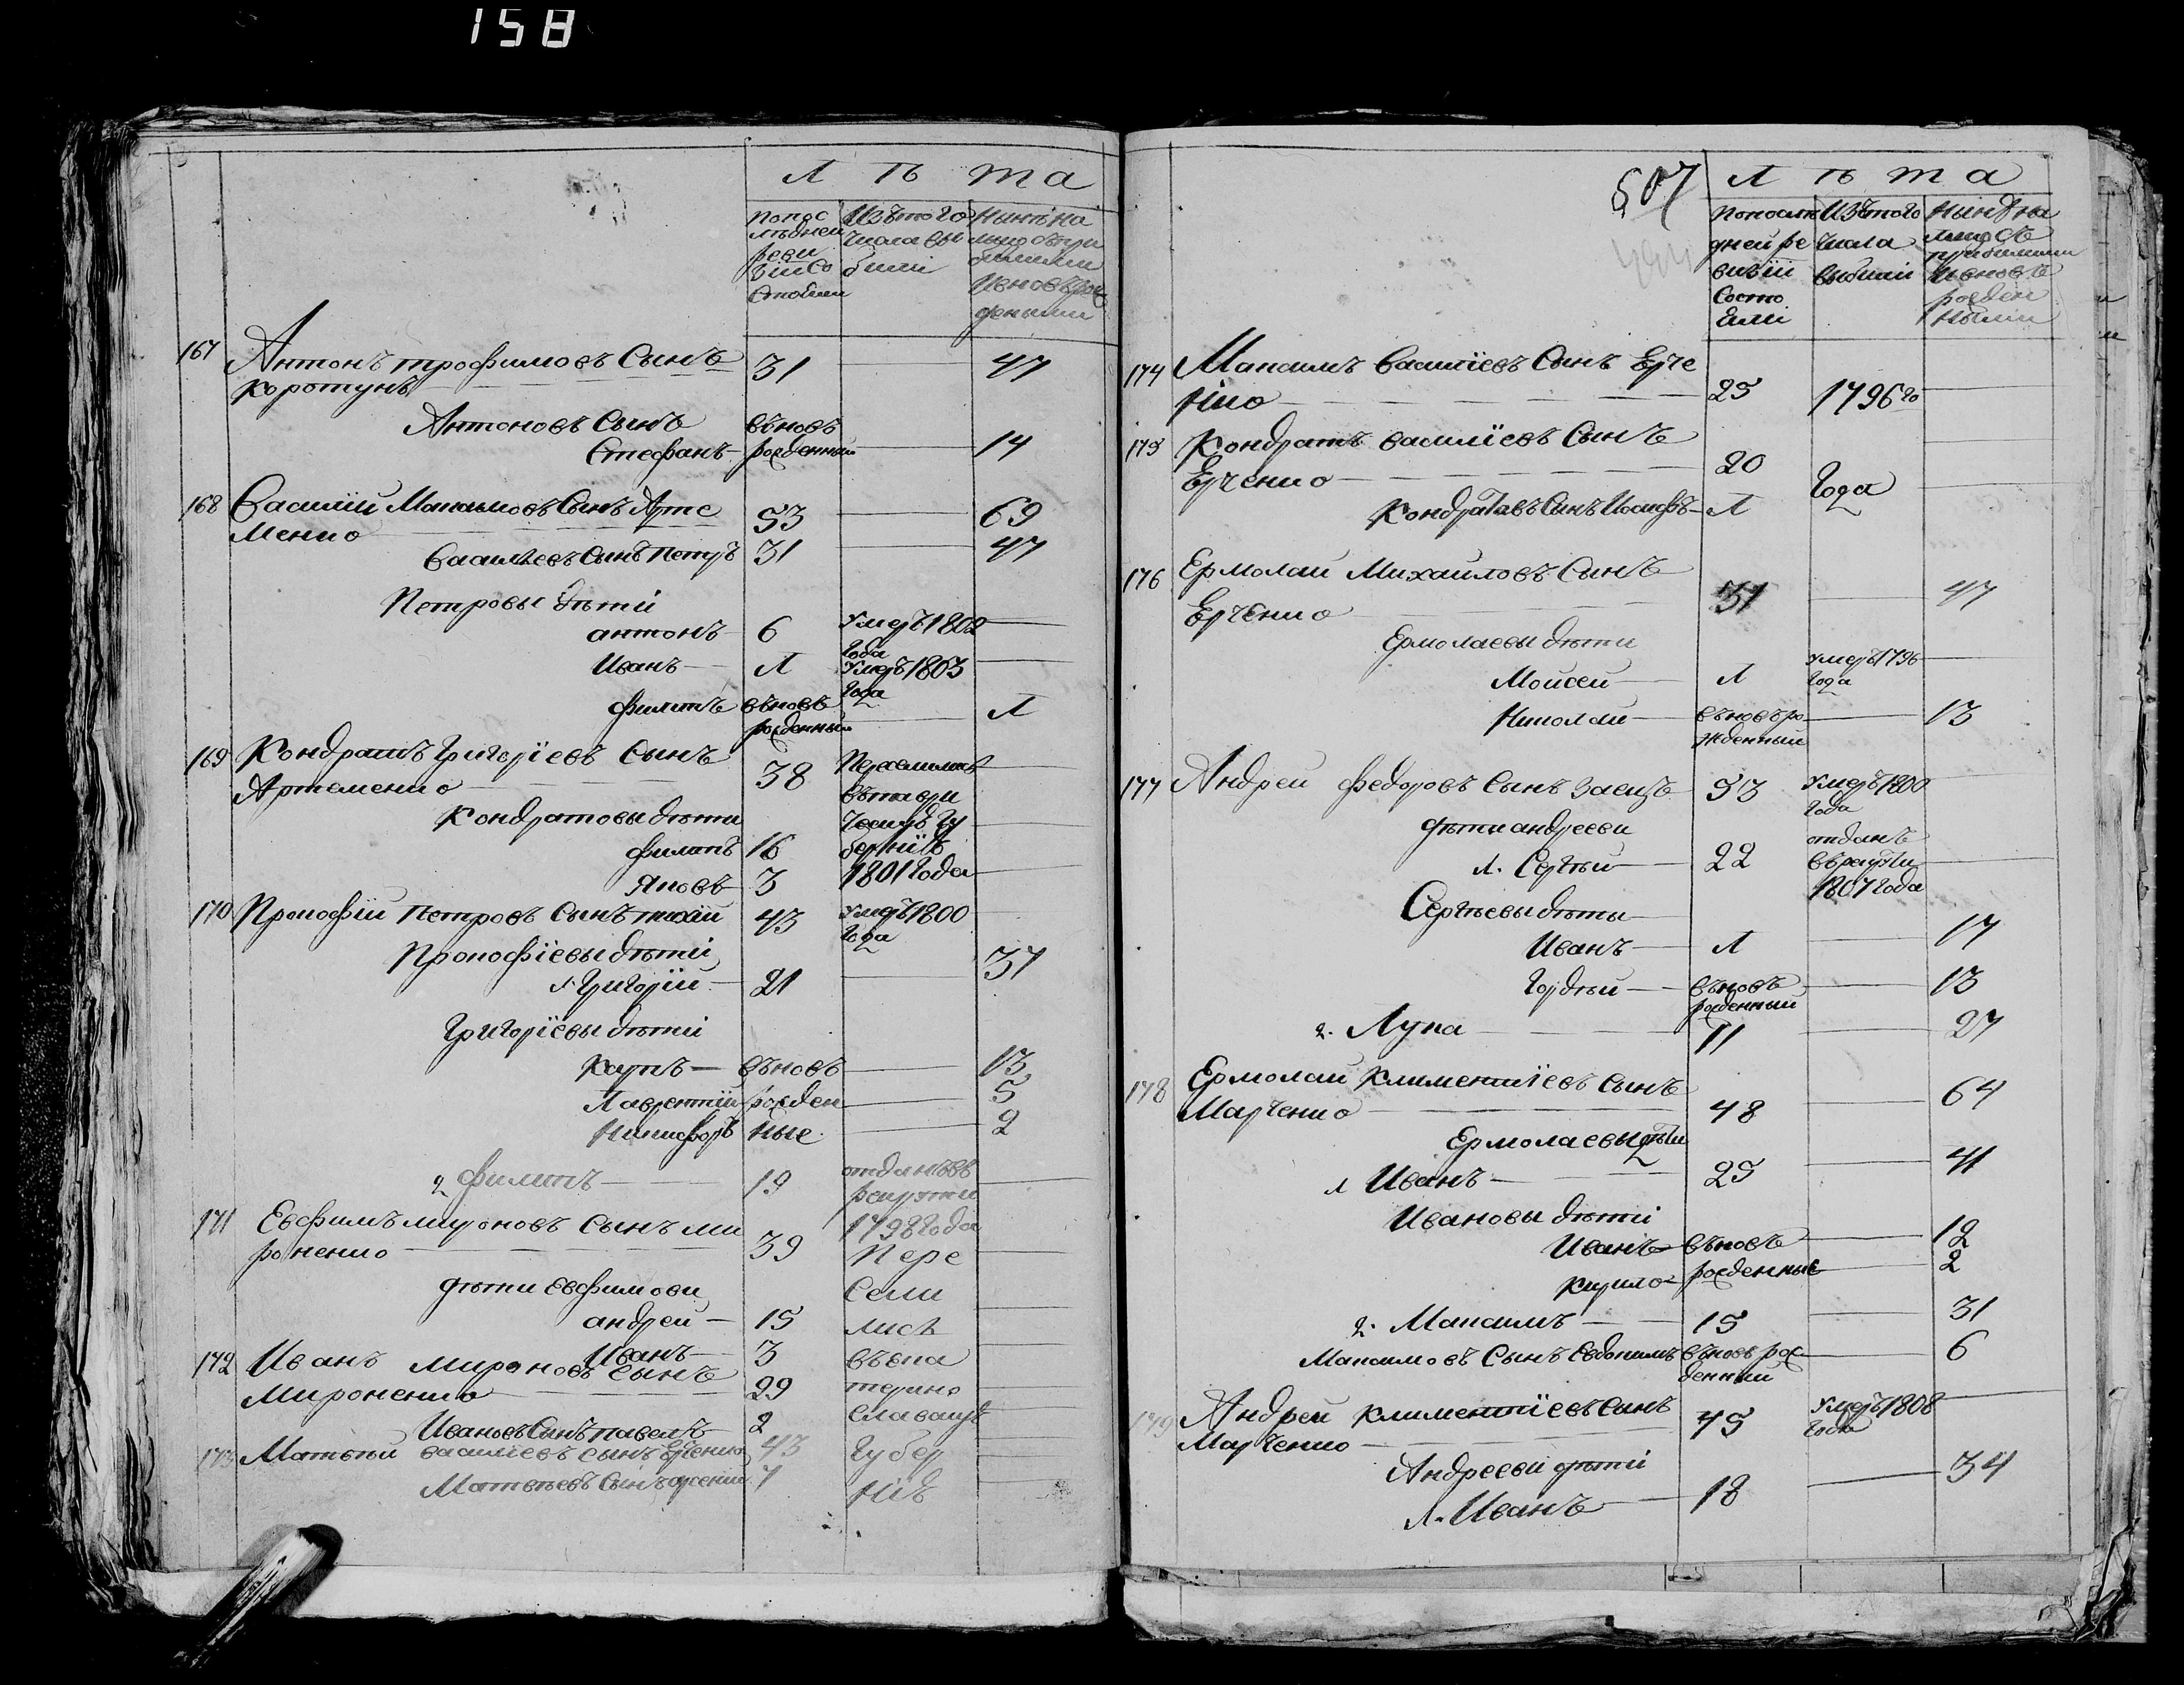 158
Л ѣ та
попос лѣднеи реви зіи Со стояли
Изъ того числа вы были
Нынѣ на лицо съ при былыми И вновь рож деными
167 Антонъ трофимовъ Сынъ
коротунъ 31 47
Антоновъ Сынъ вновь
Стефанъ рожденный 14
168 Василій Максимовъ Сынъ Арте
менко 53 69
Васильевъ Сынъ петръ 31 47
Петровы дѣти
антонъ 6 Умеръ 1802 года
Иванъ 1 Умеръ 1803 года
филипъ вновь рожденный 1
169 Кондратъ Григоріевъ Сынъ
Артеменко 38 Переселились
Кондратовы дѣти въ таври
филипъ 16 ческую гу бернію
Яковъ 3 1801 Года
170 Прокофій петровъ Сынъ тихій 43 Умеръ 1800 года
Прокофіевы дѣти
1. Григорій 21 37
Григоріевы дѣти
карпъ вновь 13
Лаврентій рожден 5
Никифоръ ные 2
2. филипъ 19 отданъ въ рекруты 1798 года
171 Евфимъ мироновъ Сынъ ми
роненко 39 Пере
дѣти Евфимови сели
андрей 15 лись
Иванъ 3 въ ека
172 Иванъ мироновъ Сынъ
Мироненко 29 терино
Ивановъ Сынъ павелъ 2 славскую
173 Матвѣй василіевъ сынъ Ерченко 43 Губер
Матвѣевъ Сынъ 7 нію
507
Л ѣ та
Попослѣ дней ре визіи Состо яли
Изъ того числа выбыли
Нынѣ на лицо съ прибылыми И вновь рожден ными
174 Максимъ Василіевъ Сынъ Ерче
нко 25 1796 го
175 Кондратъ василіевъ Сынъ
Ерченко 20 Года
Кондратовъ Сынъ Иосифъ 1
176 Ермолай Михаиловъ Сынъ
Ерченко 31 47
Ермолаевы дѣти
Моисей 1 умеръ 1796 года
Николай вновь ро жденный 13
177 Андрей федоровъ Сынъ Заецъ 53 Умеръ 1800 года
дѣти андрееви
1. Сергѣй 22 отданъ въ рекруты 1807 года
Сергѣевы дѣти
Иванъ 1 17
Гордѣй вновь рожденный 13
2. Лука 11 27
178 Ермолай Климентіевъ Сынъ
Марченко 48 64
Ермолаевы дѣти
1 Иванъ 25 41
Ивановы дѣти
Иванъ вновь 12
Кирило рожденные 2
2. Максимъ 15 31
Максимовъ Сынъ Евдокимъ вновь рож денный 6
179 Андрей климентіевъ Сынъ
Марченко 45 Умеръ 1808 года
Андрееви дѣти
1. Иванъ 18 34